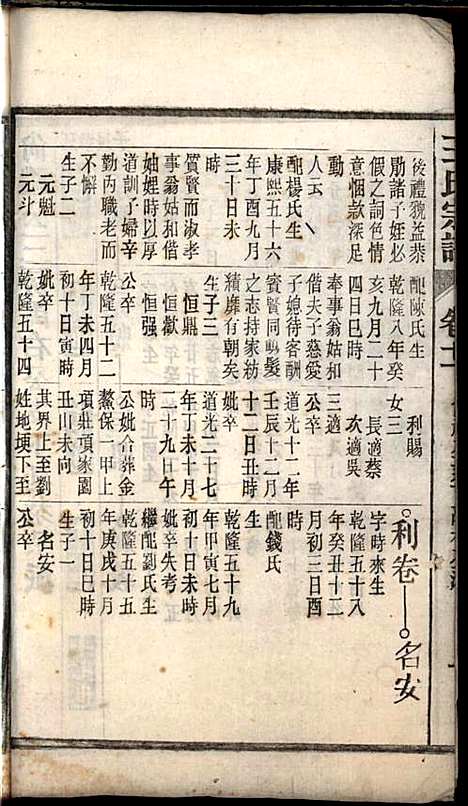 王氏宗譜
卷十一
後禮貌益恭
勖諸子姪必
假之詞色情
意悃款深足
動
人云
配楊氏生
康熙五十六
年丁酉九月
三十日辰
時
質賢而淑孝
事翁姑和偕
妯娌時以厚
道訓子婦辛
勤内職老而
不懈
生子二
元魁
元斗
配陳氏生
乾隆八年癸
亥九月二十
四日巳時
奉事翁姑和
偕夫子慈愛
子媳待客酬
賓賢同鴫髮
之志持家紡
績靡有朝矣
生子三
恒鼎
恒强
公卒
乾隆五十二
年丁未四月
初十日寅時
妣卒
乾隆五十四
利賜
女三
長適蔡
次適吳
三適
公卒
道光十二年
壬辰十二月
十二日丑時
妣卒
道光二十七
年丁未十月
二十九日午
時
公妣合葬金
鰲保一甲上
項莊項家園
丑山未向
其界上至劉
姓地埂下至
利卷
名安
字時來生
乾隆五十八
年癸丑十二
月初三日酉
時
配錢氏
生
乾隆五十九
年甲寅七月
初十日未時
妣卒失考
繼配劉氏生
乾隆五十五
年庚戌十月
初十日巳時
生子一
名安
公卒